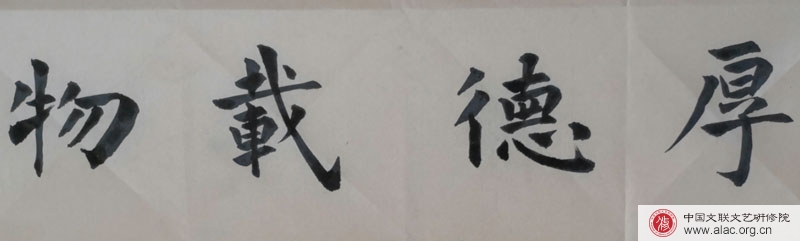 厚德載物
中国文联文艺研修院
www.alac.org.cn